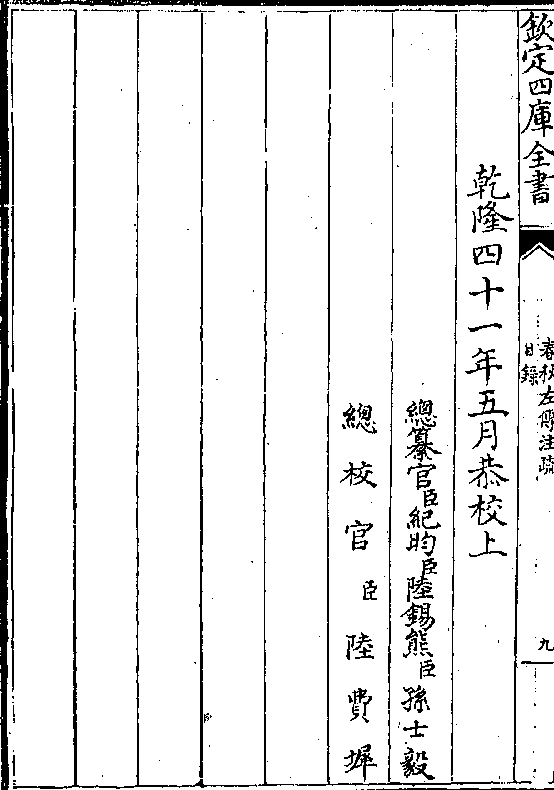 欽定四庫全書
春秋左傳注疏
目錄
九
乾隆四十一年五月恭校上
總纂官臣紀昀臣陸錫熊臣孫士毅
總校官臣陸費墀